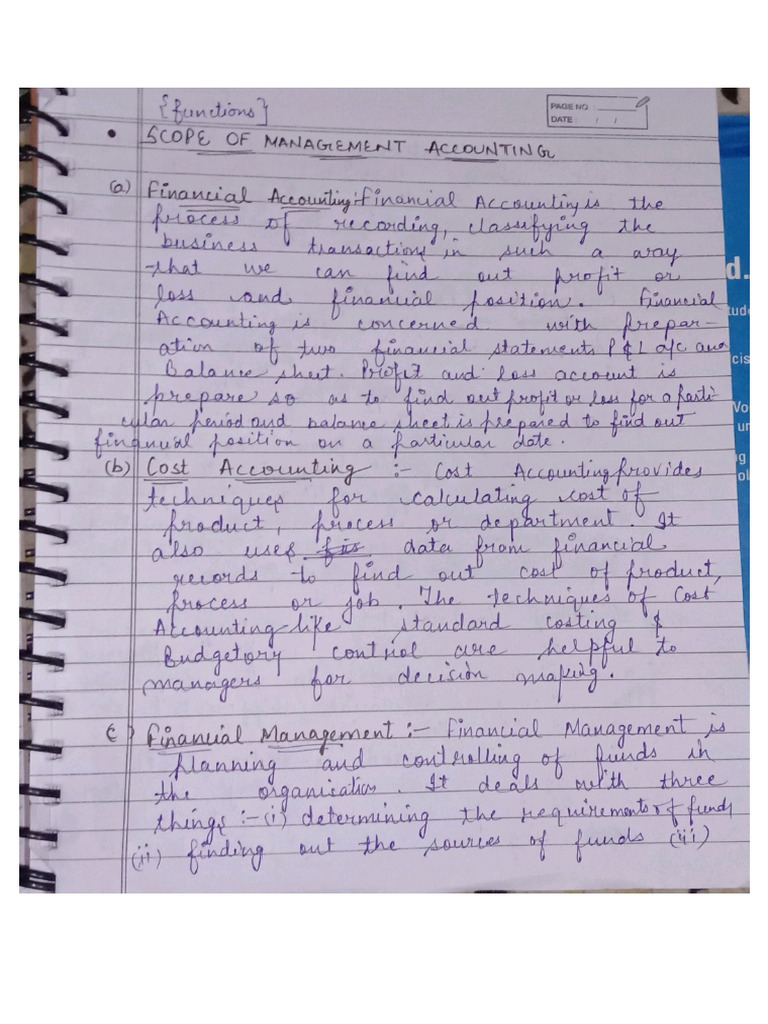 {functions}
PAGE NO :
DATE : / /
• SCOPE OF MANAGEMENT ACCOUNTING
(a) Financial Accounting :- Financial Accounting is the
process of recording, classifying the
business transactions in such a way
that we can find out profit or
loss and financial position. Financial
Accounting is concerned with prepar-
ation of two financial statements P & L a/c and
Balance sheet. Profit and loss account is
prepare so as to find out profit or loss for a parti-
cular period and balance sheet is prepared to find out
financial position on a particular date.
(b) Cost Accounting :- Cost Accounting provides
techniques for calculating cost of
product, process or department. It
also uses data from financial
records to find out cost of product,
process or job. The techniques of Cost
Accounting like standard costing &
Budgetory control are helpful to
managers for decision making.
c) Financial Management :- Financial Management is
planning and controlling of funds in
the organisation. It deals with three
things :- (i) determining the requirements of funds
(ii) finding out the sources of funds (iii)
d.
tud
cis
Vo
un
g
ol